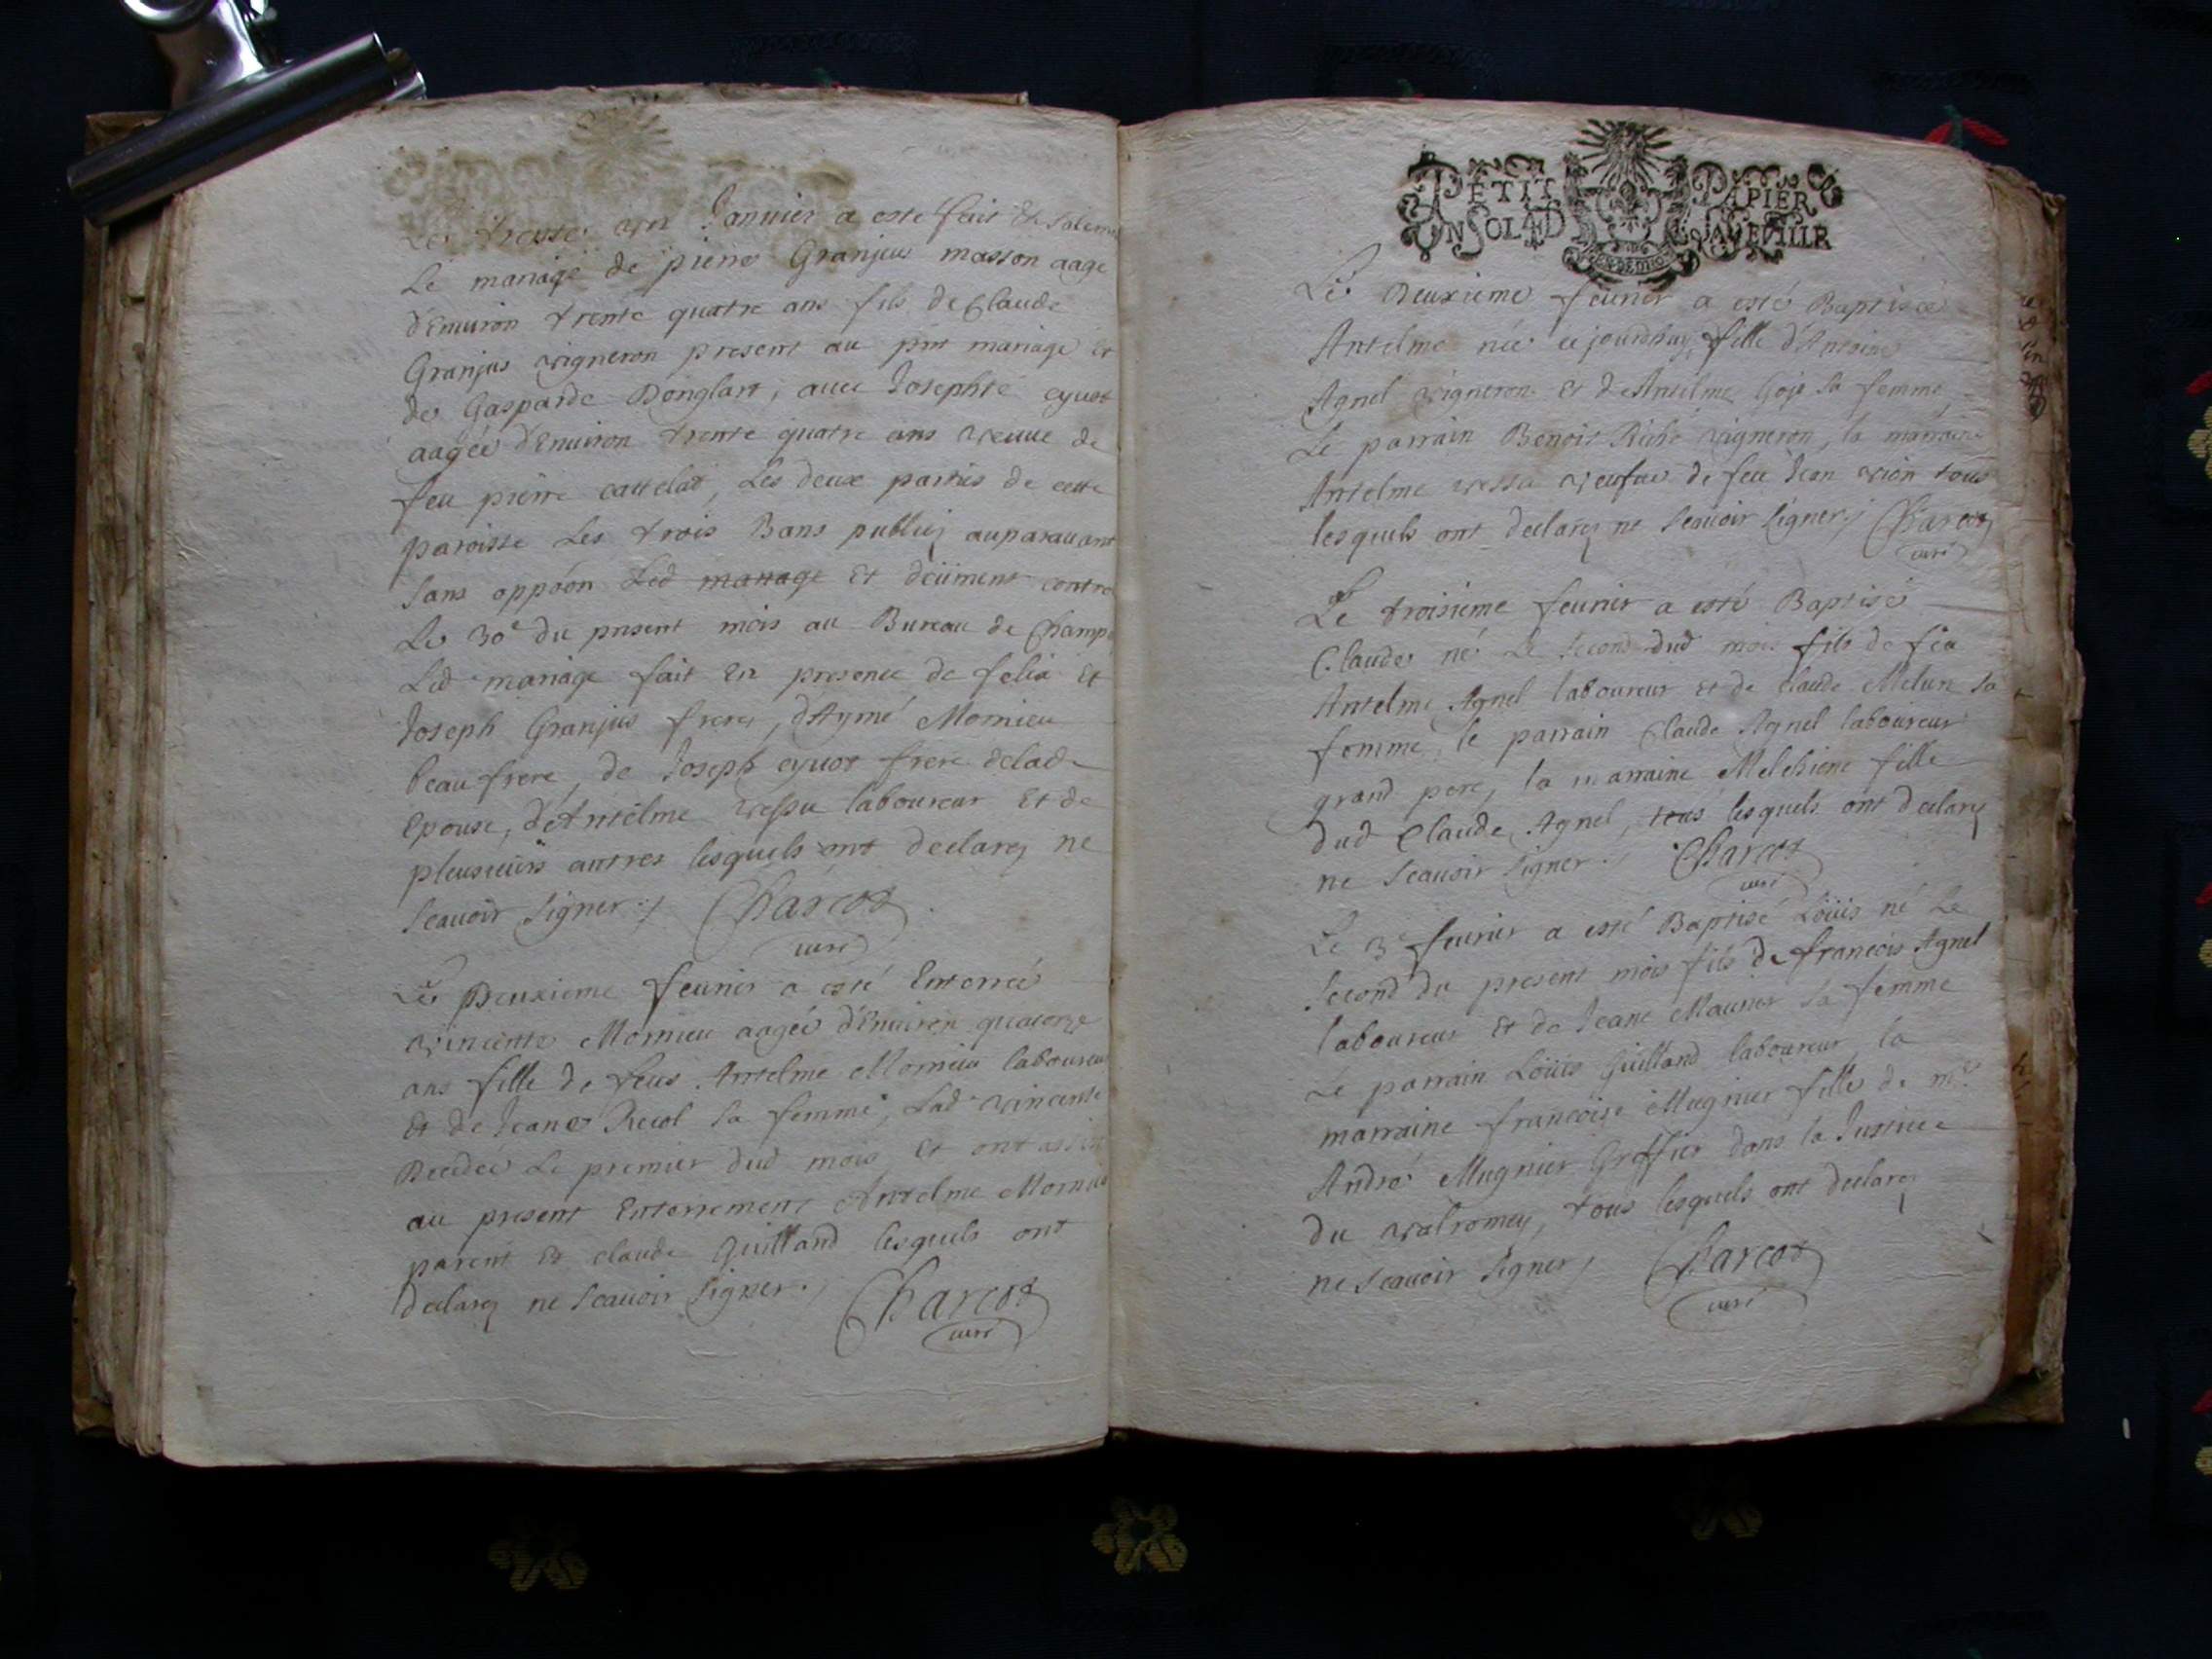 Le trente un Januier a esté fait et solemn
Le mariage de pierre Granjus masson aage
d'Enuiron trente quatre ans fils de Claude
Granjus vigneron present au pnt mariage et
de Gasparde Donglart, auec Josephte eyuot
aagée d'Enuiron trente quatre ans veuue de
feu pierre cattelat, Les deux parties de cette
paroisse Les trois Bans publiez auparauant
sans oppôon Led mariage Et deüment contro
Le 30e du present mois au Bureau de Champ
Led mariage fait En presence de felix Et
Joseph Granjus freres, d'Aymé Mornieu
beaufrere, de Joseph eyuot frere delad
Epouse, d'Antelme vessu laboureur Et de
pleusieurs autres lesquels ont declarez ne
Scauoir Signer ./ Charcot
curé
Le Deuxieme feurier a esté Enterreé
vincente Mornieu aagée d'Enuiron quatorze
ans fille de feus Antelme Mornieu laboureur
Et de Jeane Recol sa femme, Lad vincente
Decedeé Le premier dud mois Et ont assis
au present Enterrement Antelme Mornieu
parent Et claude Guilland lesquels ont
declarez ne Scauoir Signer ./ Charcot
curé
PETIT PAPIER
UN SOL 4 D LA FEUILLE
Le Deuxieme feurier a esté Baptiseé
Antelme neé ce jourdhuy fille d'Antoine
Agnel vigneron Et d'Antelme Goje sa femme,
Le parrain Benoit Riche vigneron, la marraine
Antelme vessu veufue de feu Jean vion tous
lesquels ont declarez ne Scauoir Signer ./ Charcot
curé
Le troisieme feurier a esté Baptisé
Claude né Le Second dud mois fils de feu
Antelme Agnel laboureur et de Claude Melun sa
femme, le parrain Claude Agnel laboureur
grand pere, la marraine Melchiene fille
dud Claude Agnel, tous lesquels ont declarez
ne Scauoir Signer ./ Charcot
curé
Le 3e feurier a esté Baptisé Loüis né Le
Second du present mois fils de francois Agnel
laboureur Et de Jeane Maunier sa femme
Le parrain Loüis Guilland laboureur, la
marraine francoise Mugnier fille de me
André Mugnier Greffier dans la Justice
du valromey, tous lesquels ont declarez
ne Scauoir Signer ./ Charcot
curé